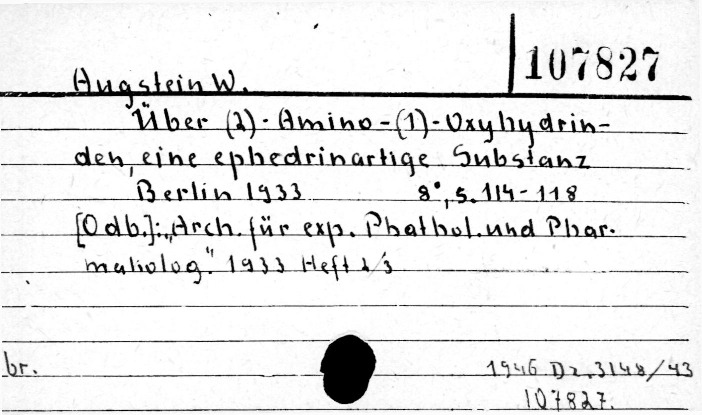 107827
Augstein W.
Über (2)-Amino-(1)-Oxyhydrin-
den, eine ephedrinartige Substanz
Berlin 1933 8°, S. 114-118
[Odb.]: „Arch. für exp. Phathol. und Phar-
makolog." 1933 Heft 2/3
br.
1946 Dz. 3148/43
107827.